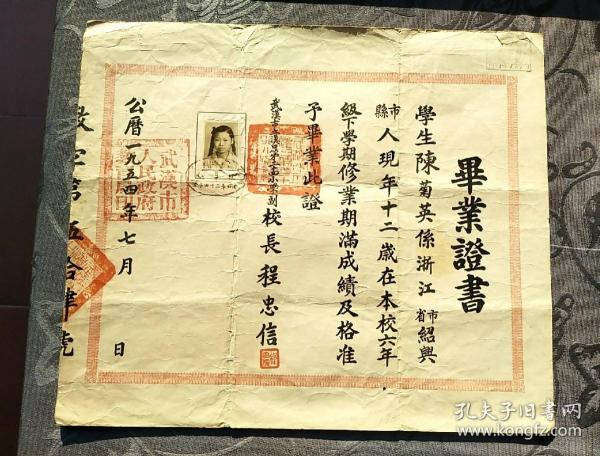 畢業證書
學生陳菊英係浙江省市紹興
縣市人現年十二歲在本校六年
級下學期修業期滿成績及格准
予畢業此證
校長程忠信
公曆一九五四年七月 日
武漢市人民政府
字第伍拾肆號
孔夫子旧书网
www.kongfz.com